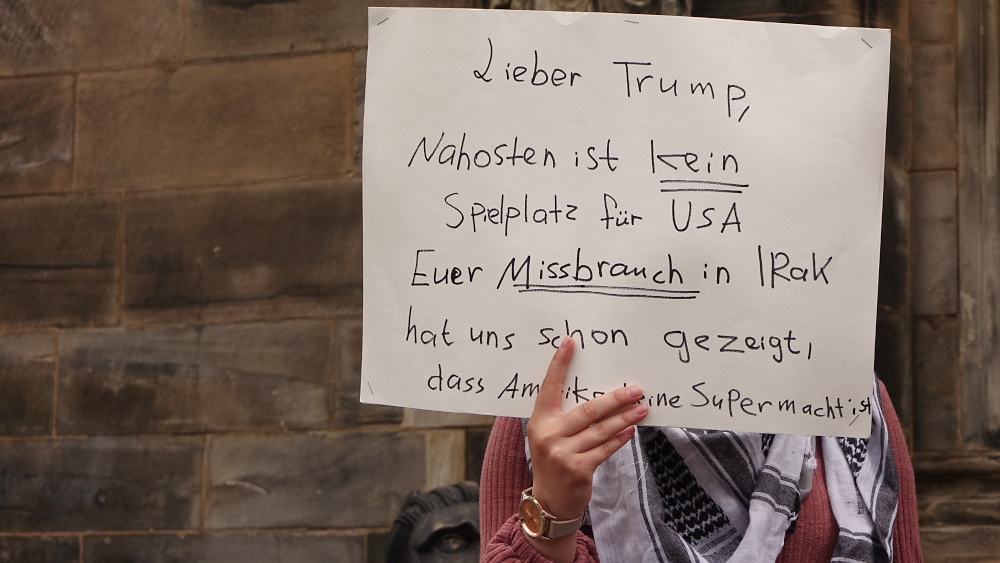 Lieber Trump,
Nahosten ist kein
Spielplatz für USA
Euer Missbrauch in IRak
hat uns schon gezeigt,
dass Amerika Supermacht ist